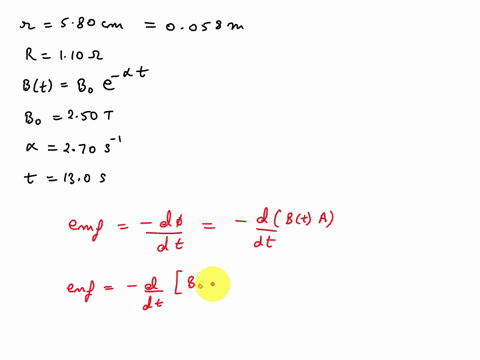 r = 5.80 cm = 0.058 m
R = 1.10 Ω
B(t) = B₀ e^{-αt}
B₀ = 2.50 T
α = 2.70 s⁻¹
t = 13.0 s
emf = -dϕ/dt = - d(B(t) A)/dt
emf = - d/dt [B₀